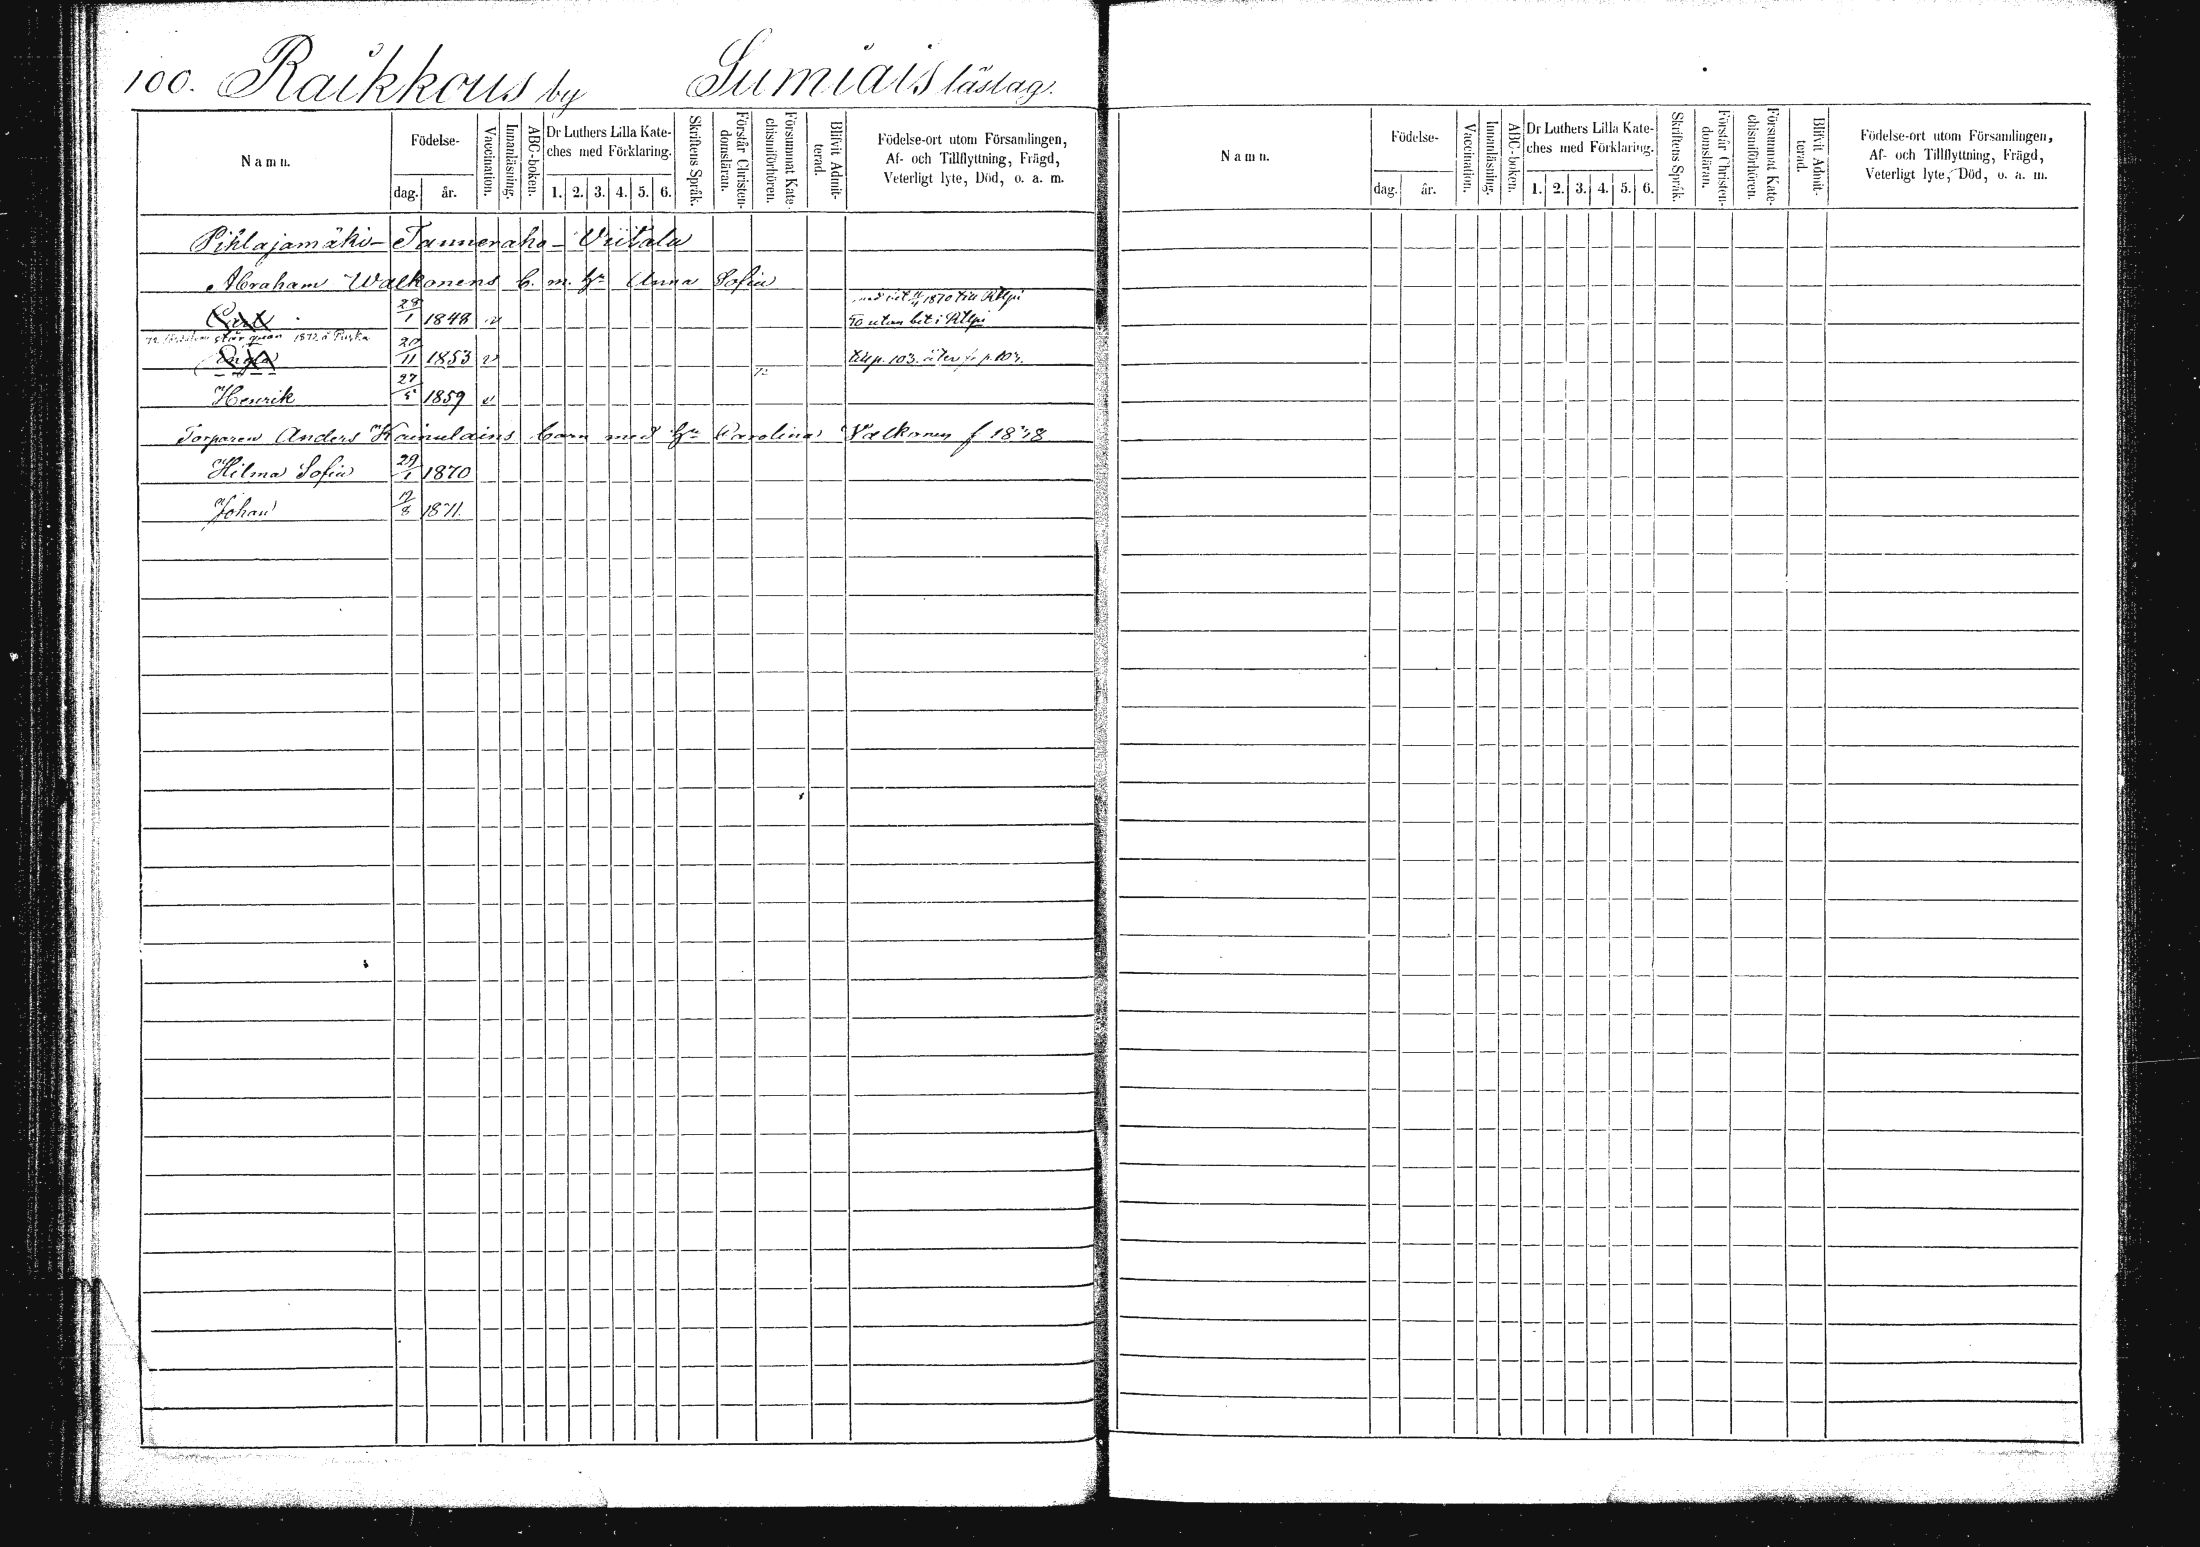 100. Raikkous by Sumiais läslag.
Namn. Födelse- dag. år. Vaccination. Innanläsning. ABC-boken. Dr Luthers Lilla Kate-ches med Förklaring. 1. 2. 3. 4. 5. 6. Skriftens Språk. Förstår Christen-domsläran. Försummat Kate-chismiförhören. Blifvit Admit-terad. Födelse-ort utom Församlingen, Af- och Tillflyttning, Frägd, Veterligt lyte, Död, o. a. m.
Pihlajamäki- Tanneraho- Viitala
Abraham Walkonens b. m. hu Anna Sofia
1870 till Rtlpi
28/1 1848 v 70 utan bet i Rtlpi
qvar 1872 å
20/11 1853 v till p. 103. åter fr p. 103.
72
Henrik 27/5 1859 v
Torparen Anders Kainulains barn med hu Carolina Valkonen f 1848
Hilma Sofia 29/1 1870
Johan 12/8 1871.
Namn. Födelse- dag. år. Vaccination. Innanläsning. ABC-boken. Dr Luthers Lilla Kate-ches med Förklaring. 1. 2. 3. 4. 5. 6. Skriftens Språk. Förstår Christen-domsläran. Försummat Kate-chismiförhören. Blifvit Admit-terad. Födelse-ort utom Församlingen, Af- och Tillflyttning, Frägd, Veterligt lyte, Död, o. a. m.